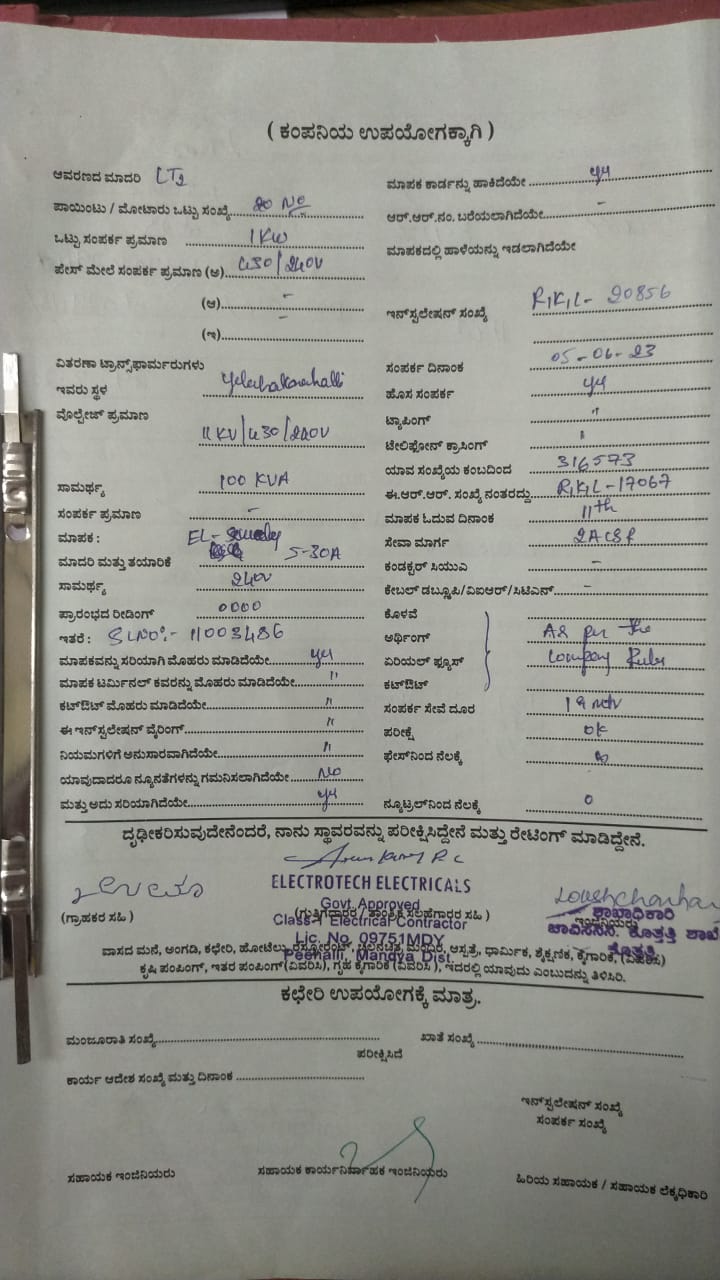 ( ಕಂಪನಿಯ ಉಪಯೋಗಕ್ಕಾಗಿ )
ಆವರಣದ ಮಾದರಿ LT2
ಪಾಯಿಂಟು / ಮೋಟಾರು ಒಟ್ಟು ಸಂಖ್ಯೆ 20 No
ಒಟ್ಟು ಸಂಪರ್ಕ ಪ್ರಮಾಣ 1KW
ಪೇಸ್ ಮೇಲೆ ಸಂಪರ್ಕ ಪ್ರಮಾಣ (ಅ) 430/240V
(ಆ) -
(ಇ) -
ವಿತರಣಾ ಟ್ರಾನ್ಸ್‌ಫಾರ್ಮರುಗಳು
ಇವರು ಸ್ಥಳ
ವೊಲ್ಟೇಜ್ ಪ್ರಮಾಣ
11KV/430/240V
ಸಾಮರ್ಥ್ಯ 100 KVA
ಸಂಪರ್ಕ ಪ್ರಮಾಣ -
ಮಾಪಕ : EL-
ಮಾದರಿ ಮತ್ತು ತಯಾರಿಕೆ 5-30A
ಸಾಮರ್ಥ್ಯ 240V
ಪ್ರಾರಂಭದ ರೀಡಿಂಗ್ 0000
ಇತರೆ : SLNO:- 11003486
ಮಾಪಕವನ್ನು ಸರಿಯಾಗಿ ಮೊಹರು ಮಾಡಿದೆಯೇ
ಮಾಪಕ ಟರ್ಮಿನಲ್ ಕವರನ್ನು ಮೊಹರು ಮಾಡಿದೆಯೇ "
ಕಟ್‌ಔಟ್ ಮೊಹರು ಮಾಡಿದೆಯೇ "
ಈ ಇನ್‌ಸ್ಪಲೇಷನ್ ವೈರಿಂಗ್ "
ನಿಯಮಗಳಿಗೆ ಅನುಸಾರವಾಗಿದೆಯೇ "
ಯಾವುದಾದರೂ ನ್ಯೂನತೆಗಳನ್ನು ಗಮನಿಸಲಾಗಿದೆಯೇ No
ಮತ್ತು ಅದು ಸರಿಯಾಗಿದೆಯೇ
ಮಾಪಕ ಕಾರ್ಡನ್ನು ಹಾಕಿದೆಯೇ
ಆರ್.ಆರ್.ನಂ. ಬರೆಯಲಾಗಿದೆಯೇ -
ಮಾಪಕದಲ್ಲಿ ಹಾಳೆಯನ್ನು ಇಡಲಾಗಿದೆಯೇ
ಇನ್‌ಸ್ಪಲೇಷನ್ ಸಂಖ್ಯೆ RKL- 20856
ಸಂಪರ್ಕ ದಿನಾಂಕ 05-06-23
ಹೊಸ ಸಂಪರ್ಕ
ಟ್ಯಾಪಿಂಗ್ "
ಟೆಲಿಫೋನ್ ಕ್ರಾಸಿಂಗ್ "
ಯಾವ ಸಂಖ್ಯೆಯ ಕಂಬದಿಂದ 316573
ಈ.ಆರ್.ಆರ್. ಸಂಖ್ಯೆ ನಂತರದ್ದು RKL-17067
ಮಾಪಕ ಓದುವ ದಿನಾಂಕ 11th
ಸೇವಾ ಮಾರ್ಗ 2ACSR
ಕಂಡಕ್ಟರ್ ಸಿಯುಎ -
ಕೇಬಲ್ ಡಬ್ಲ್ಯೂಪಿ/ವಿಐಆರ್/ಸಿಟಿಎನ್ -
ಕೊಳವೆ
ಅರ್ಥಿಂಗ್ As per the
ಏರಿಯಲ್ ಫ್ಯೂಸ್ Company Rules
ಕಟ್‌ಔಟ್
ಸಂಪರ್ಕ ಸೇವೆ ದೂರ
ಪರೀಕ್ಷೆ ok
ಫೇಸ್‌ನಿಂದ ನೆಲಕ್ಕೆ
ನ್ಯೂಟ್ರಲ್‌ನಿಂದ ನೆಲಕ್ಕೆ 0
ದೃಢೀಕರಿಸುವುದೇನೆಂದರೆ, ನಾನು ಸ್ಥಾವರವನ್ನು ಪರೀಕ್ಷಿಸಿದ್ದೇನೆ ಮತ್ತು ರೇಟಿಂಗ್ ಮಾಡಿದ್ದೇನೆ.
ELECTROTECH ELECTRICALS
Govt. Approved
Class-I Electrical Contractor
Lic. No. 09751MDY
Peehalli, Mandya Dist.
(ಗ್ರಾಹಕರ ಸಹಿ )
(ಗುತ್ತಿಗೆದಾರರ / ತಾಂತ್ರಿಕ ಸಲಹೆಗಾರರ ಸಹಿ )
ಶಾಖಾಧಿಕಾರಿ
ಚಾವಿಸನಿನಿ. ಕೊತ್ತತ್ತಿ ಶಾಖೆ
ಕೊತ್ತತ್ತಿ
ವಾಸದ ಮನೆ, ಅಂಗಡಿ, ಕಛೇರಿ, ಹೋಟೆಲು, ರೆಸ್ಟೋರೆಂಟ್, ಚಲನಚಿತ್ರ ಮಂದಿರ, ಆಸ್ಪತ್ರೆ, ಧಾರ್ಮಿಕ, ಶೈಕ್ಷಣಿಕ, ಕೈಗಾರಿಕೆ, (ವಿವರಿಸಿ)
ಕೃಷಿ ಪಂಪಿಂಗ್, ಇತರ ಪಂಪಿಂಗ್ (ವಿವರಿಸಿ), ಗೃಹ ಕೈಗಾರಿಕೆ (ವಿವರಿಸಿ ), ಇದರಲ್ಲಿ ಯಾವುದು ಎಂಬುದನ್ನು ತಿಳಿಸಿರಿ.
ಕಛೇರಿ ಉಪಯೋಗಕ್ಕೆ ಮಾತ್ರ.
ಮಂಜೂರಾತಿ ಸಂಖ್ಯೆ
ಖಾತೆ ಸಂಖ್ಯೆ
ಪರೀಕ್ಷಿಸಿದೆ
ಕಾರ್ಯ ಆದೇಶ ಸಂಖ್ಯೆ ಮತ್ತು ದಿನಾಂಕ
ಇನ್‌ಸ್ಪಲೇಷನ್ ಸಂಖ್ಯೆ
ಸಂಪರ್ಕ ಸಂಖ್ಯೆ
ಸಹಾಯಕ ಇಂಜಿನಿಯರು
ಸಹಾಯಕ ಕಾರ್ಯನಿರ್ವಾಹಕ ಇಂಜಿನಿಯರು
ಹಿರಿಯ ಸಹಾಯಕ / ಸಹಾಯಕ ಲೆಕ್ಕಧಿಕಾರಿ